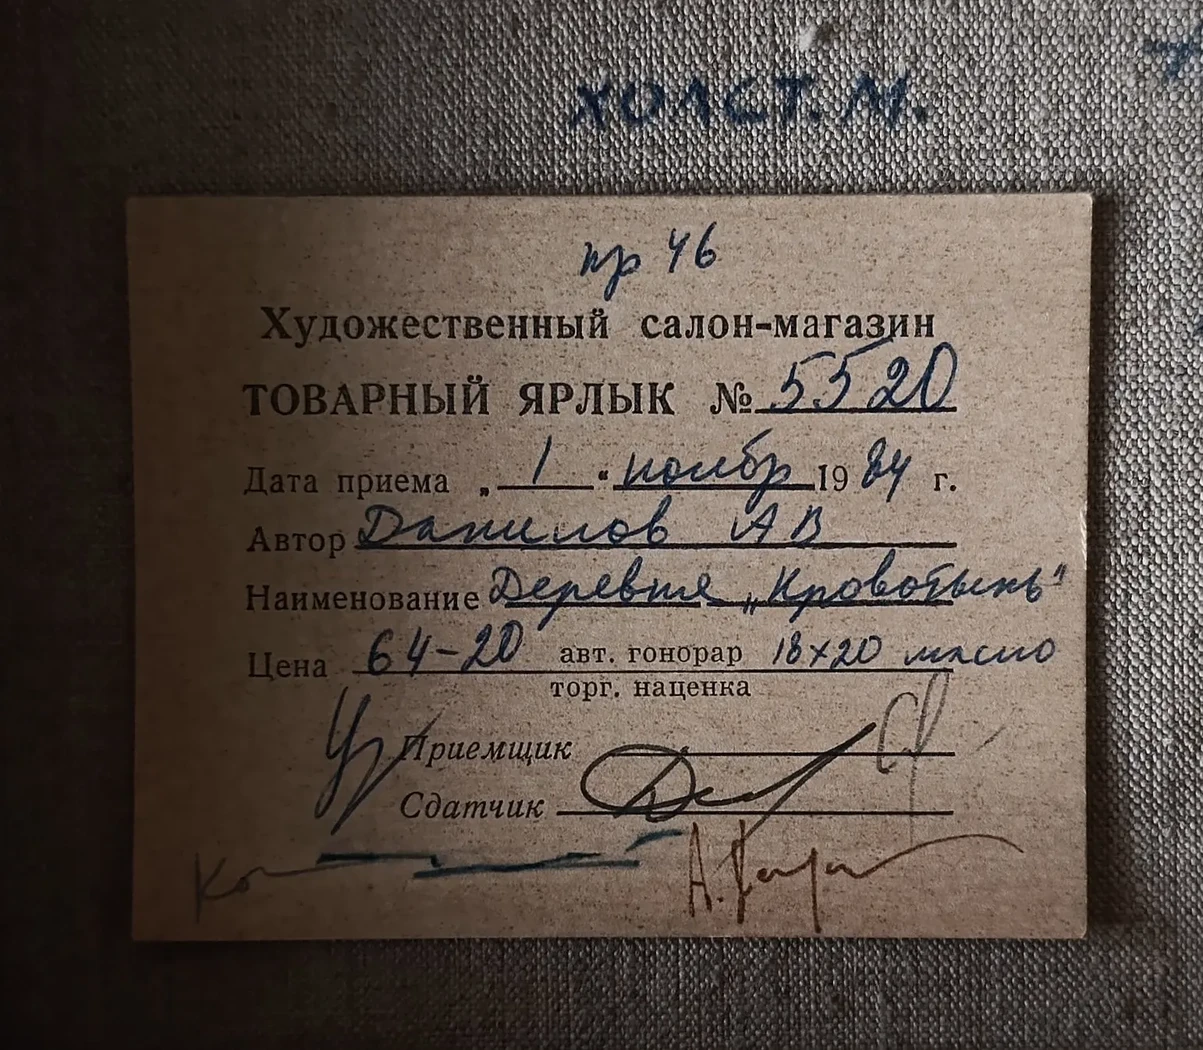 ХОЛСТ. М.
пр 46
Художественный салон-магазин
ТОВАРНЫЙ ЯРЛЫК № 5520
Дата приема „ 1 “ ноябр 1984 г.
Автор Данилов А В
Наименование Деревня „Кровотынь"
Цена 64-20 авт. гонорар 18х20 масло
торг. наценка
Приемщик
Сдатчик